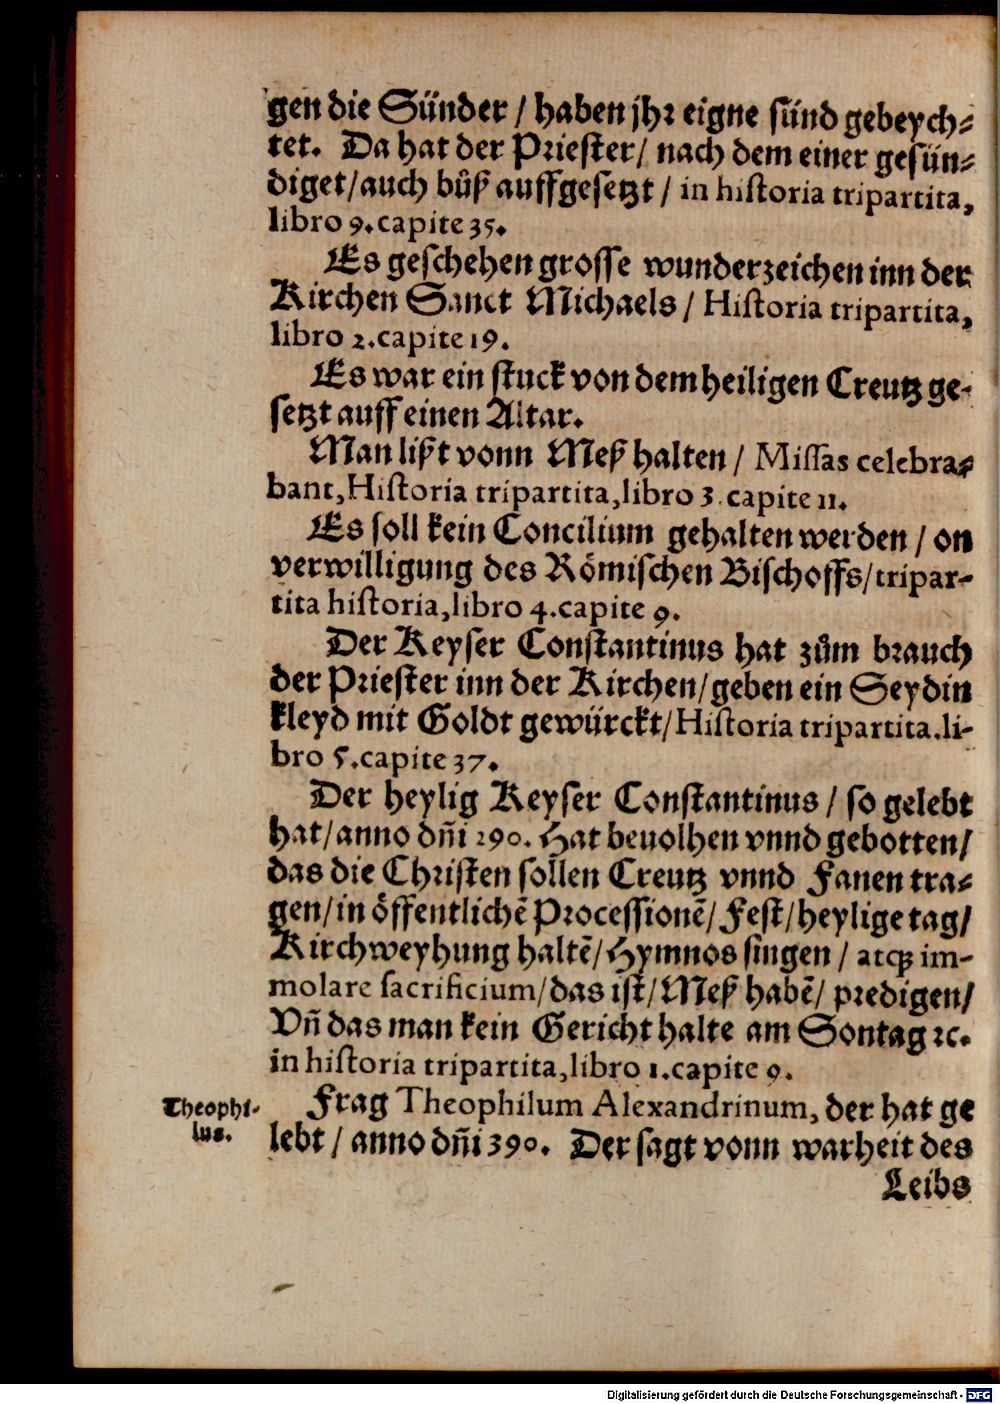 gen die Sünder / haben jhr eigne sünd gebeych⸗
tet. Da hat der Priester / nach dem einer gesün⸗
diget / auch bůß auffgesetzt / in historia tripartita,
libro 9. capite 35.
Es geschehen grosse wunderzeichen inn der
Kirchen Sanct Michaels / Historia tripartita,
libro 2. capite 19.
Es war ein stuck von dem heiligen Creutz ge-
setzt auff einen Altar.
Man lißt vonn Meß halten / Missas celebra⸗
bant, Historia tripartita, libro 3. capite 11.
Es soll kein Concilium gehalten werden / on
verwilligung des Römischen Bischoffs / tripar-
tita historia, libro 4. capite 9.
Der Keyser Constantinus hat zům brauch
der Priester inn der Kirchen / geben ein Seydin
kleyd mit Goldt gewürckt / Historia tripartita. li-
bro 5. capite 37.
Der heylig Keyser Constantinus / so gelebt
hat / anno dñi 290. Hat beuolhen vnnd gebotten /
das die Christen sollen Creutz vnnd Fanen tra⸗
gen / in öffentlichẽ Processionẽ / Fest / heylige tag /
Kirchweyhung haltẽ / Hymnos singen / atqꝫ im-
molare sacrificium / das ist / Meß habẽ / predigen /
Vñ das man kein Gericht halte am Sontag ꝛc.
in historia tripartita, libro 1. capite 9.
Theophi-
lus.
Frag Theophilum Alexandrinum, der hat ge
lebt / anno dñi 390. Der sagt vonn warheit des
Leibs
Digitalisierung gefördert durch die Deutsche Forschungsgemeinschaft - DFG